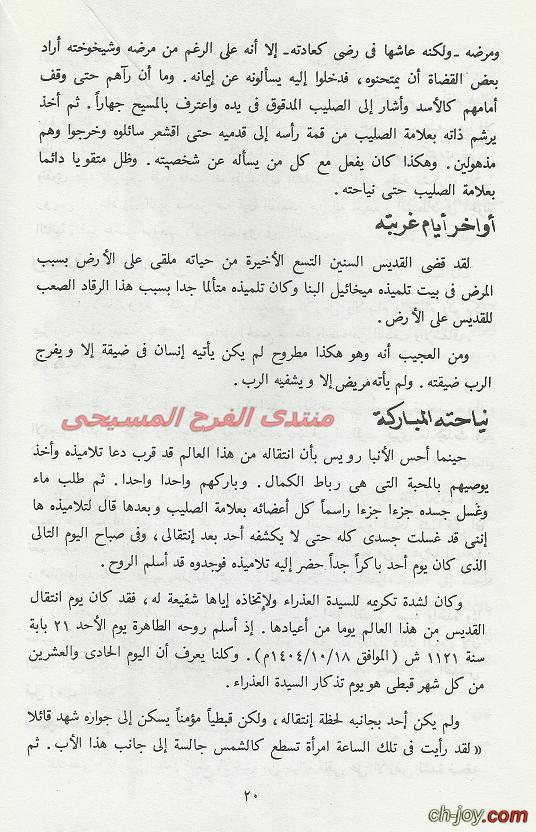 ومرضه ـ ولكنه عاشها فى رضى كعادته ـ إلا أنه على الرغم من مرضه وشيخوخته أراد
بعض القضاة أن يمتحنوه، فدخلوا إليه يسألونه عن إيمانه. وما أن رآهم حتى وقف
أمامهم كالأسد وأشار إلى الصليب المدقوق فى يده واعترف بالمسيح جهاراً. ثم أخذ
يرشم ذاته بعلامة الصليب من قمة رأسه إلى قدميه حتى اقشعر سائلوه وخرجوا وهم
مذهولين. وهكذا كان يفعل مع كل من يسأله عن شخصيته. وظل متقويا دائما
بعلامة الصليب حتى نياحته.
أواخر أيام غربته
لقد قضى القديس السنين التسع الأخيرة من حياته ملقى على الأرض بسبب
المرض فى بيت تلميذه ميخائيل البنا وكان تلميذه متألما جدا بسبب هذا الرقاد الصعب
للقديس على الأرض.
ومن العجيب أنه وهو هكذا مطروح لم يكن يأتيه إنسان فى ضيقة إلا ويفرج
الرب ضيقته. ولم يأته مريض إلا ويشفيه الرب.
نياحته المباركة
منتدى الفرح المسيحى
حينما أحس الأنبا رويس بأن انتقاله من هذا العالم قد قرب دعا تلاميذه وأخذ
يوصيهم بالمحبة التى هى رباط الكمال. وباركهم واحدا واحدا. ثم طلب ماء
وغسل جسده جزءا جزءا راسماً كل أعضائه بعلامة الصليب وبعدها قال لتلاميذه ها
إننى قد غسلت جسدى كله حتى لا يكشفه أحد بعد إنتقالى، وفى صباح اليوم التالى
الذى كان يوم أحد باكراً جداً حضر إليه تلاميذه فوجدوه قد أسلم الروح.
وكان لشدة تكريمه للسيدة العذراء ولإتخاذه إياها شفيعة له، فقد كان يوم انتقال
القديس من هذا العالم يوما من أعيادها. إذ أسلم روحه الطاهرة يوم الأحد ٢١ بابة
سنة ١١٢١ ش (الموافق ١٤٠٤/١٠/١٨م). وكلنا يعرف أن اليوم الحادى والعشرين
من كل شهر قبطى هو يوم تذكار السيدة العذراء.
ولم يكن أحد بجانبه لحظة إنتقاله، ولكن قبطياً مؤمناً يسكن إلى جواره شهد قائلا
«لقد رأيت فى تلك الساعة امرأة تسطع كالشمس جالسة إلى جانب هذا الأب. ثم
٢٠
ch-joy.com